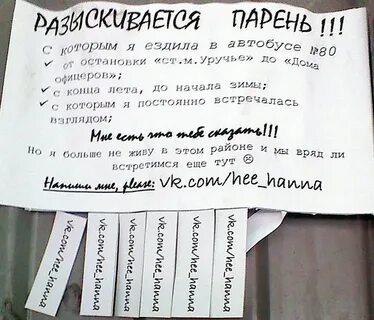 РАЗЫСКИВАЕТСЯ ПАРЕНЬ!!!
С которым я ездила в автобусе №80
✓ от остановки «ст.м.Уручье» до «Дома
офицеров»;
✓ с конца лета, до начала зимы;
✓ с которым я постоянно встречалась
взглядом;
Мне есть что тебе сказать!!!
Но я больше не живу в этом районе и мы вряд ли
встретимся еще тут ☹
Напиши мне, please: vk.com/hee_hanna
vk.com/hee_hanna
vk.com/hee_hanna
vk.com/hee_hanna
vk.com/hee_hanna
vk.com/hee_hanna
vk.com/hee_hanna